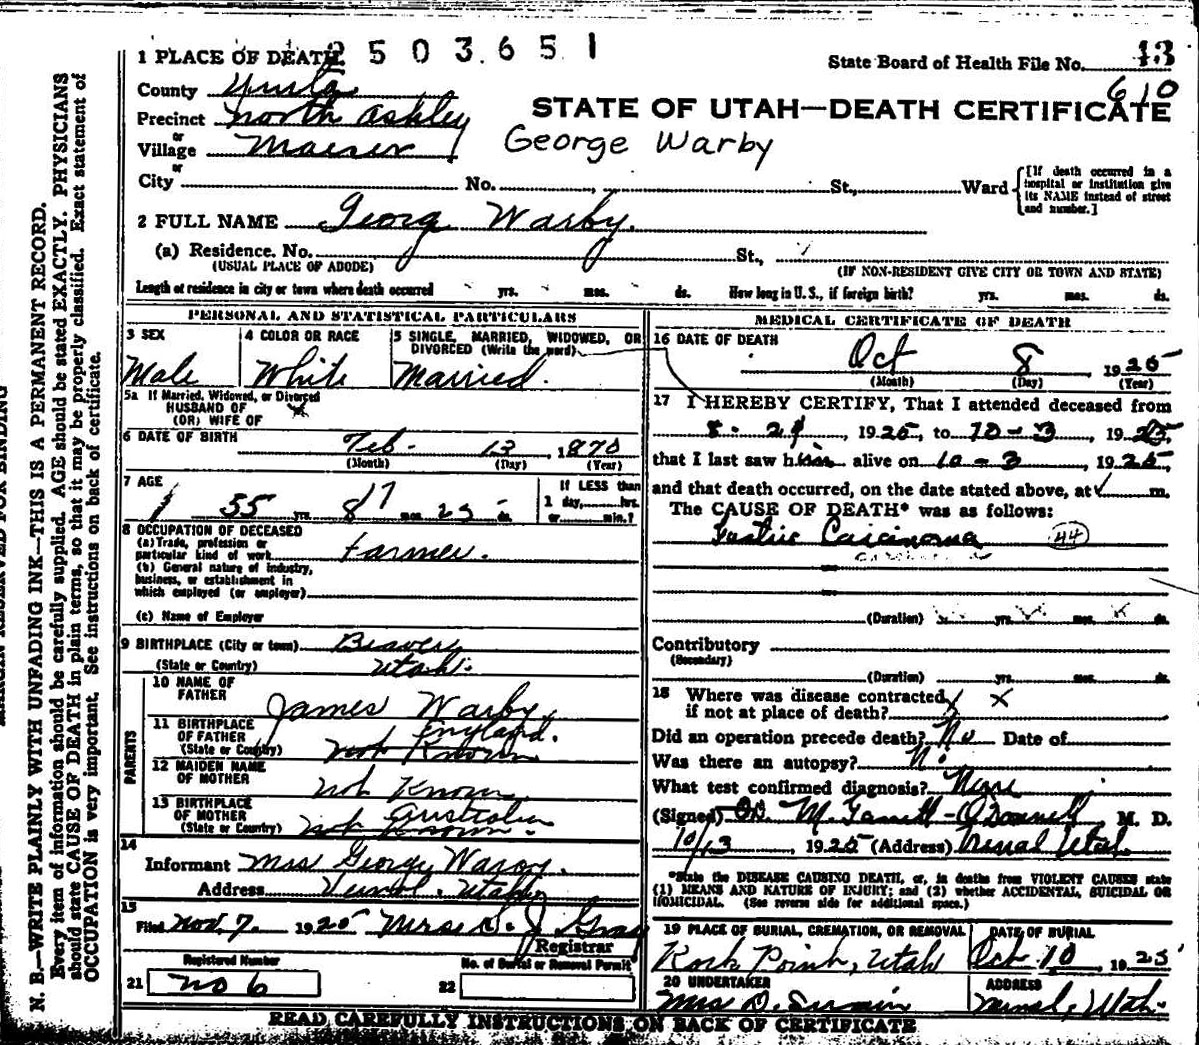 2503651
1 PLACE OF DEATH
State Board of Health File No. 13
610
County
Precinct North Ashley
STATE OF UTAH—DEATH CERTIFICATE
or
Village Maeser
George Warby
or
City No. St., Ward
[If death occurred in a hospital or institution give its NAME instead of street and number.]
2 FULL NAME Georg Warby.
(a) Residence. No. St.,
(USUAL PLACE OF ABODE) (IF NON-RESIDENT GIVE CITY OR TOWN AND STATE)
Length of residence in city or town where death occurred yrs. mos. ds. How long in U. S., if foreign birth? yrs. mos. ds.
PERSONAL AND STATISTICAL PARTICULARS
3 SEX
Male
4 COLOR OR RACE
White
5 SINGLE, MARRIED, WIDOWED, OR DIVORCED (Write the word)
Married.
5a If Married, Widowed, or Divorced
HUSBAND OF
(OR) WIFE OF
6 DATE OF BIRTH Feb. 13, 1870
(Month) (Day) (Year)
7 AGE
55 yrs. 8 17 mos. 25 ds.
If LESS than
1 day, hrs.
or min.?
8 OCCUPATION OF DECEASED
(a) Trade, profession or
particular kind of work Farmer.
(b) General nature of industry,
business, or establishment in
which employed (or employer)
(c) Name of Employer
9 BIRTHPLACE (City or town) Beaver
(State or Country) Utah.
PARENTS
10 NAME OF FATHER James Warby,
11 BIRTHPLACE OF FATHER England.
(State or Country) not Known
12 MAIDEN NAME OF MOTHER not Known
13 BIRTHPLACE OF MOTHER Australia
(State or Country) not Known.
14
Informant Mrs George Warby.
Address Vernal. Utah
15
Filed Nov. 7. 1925 Registrar
Registered Number
21 No 6
No. of Burial or Removal Permit
22
MEDICAL CERTIFICATE OF DEATH
16 DATE OF DEATH
Oct 8, 1925
(Month) (Day) (Year)
17 I HEREBY CERTIFY, That I attended deceased from
8-29, 1925, to 10-3, 1925,
that I last saw him alive on 10-3, 1925,
and that death occurred, on the date stated above, at m.
The CAUSE OF DEATH* was as follows:
Gastric Carcinoma 44
(Duration) yrs. mos. ds.
Contributory
(Secondary)
(Duration) yrs. mos. ds.
18 Where was disease contracted, x
if not at place of death?
Did an operation precede death? No Date of
Was there an autopsy? No
What test confirmed diagnosis?
(Signed) M. D.
10/13, 1925 (Address) Vernal Utah
*State the DISEASE CAUSING DEATH, or, in deaths from VIOLENT CAUSES state
(1) MEANS AND NATURE OF INJURY; and (2) whether ACCIDENTAL, SUICIDAL OR
HOMICIDAL. (See reverse side for additional space.)
19 PLACE OF BURIAL, CREMATION, OR REMOVAL
Rock Point, Utah
DATE OF BURIAL
Oct 10, 1925
20 UNDERTAKER
ADDRESS
Vernal, Utah.
READ CAREFULLY INSTRUCTIONS ON BACK OF CERTIFICATE
MARGIN RESERVED FOR BINDING
N. B.—WRITE PLAINLY WITH UNFADING INK—THIS IS A PERMANENT RECORD.
Every item of information should be carefully supplied. AGE should be stated EXACTLY. PHYSICIANS
should state CAUSE OF DEATH in plain terms, so that it may be properly classified. Exact statement of
OCCUPATION is very important. See instructions on back of certificate.